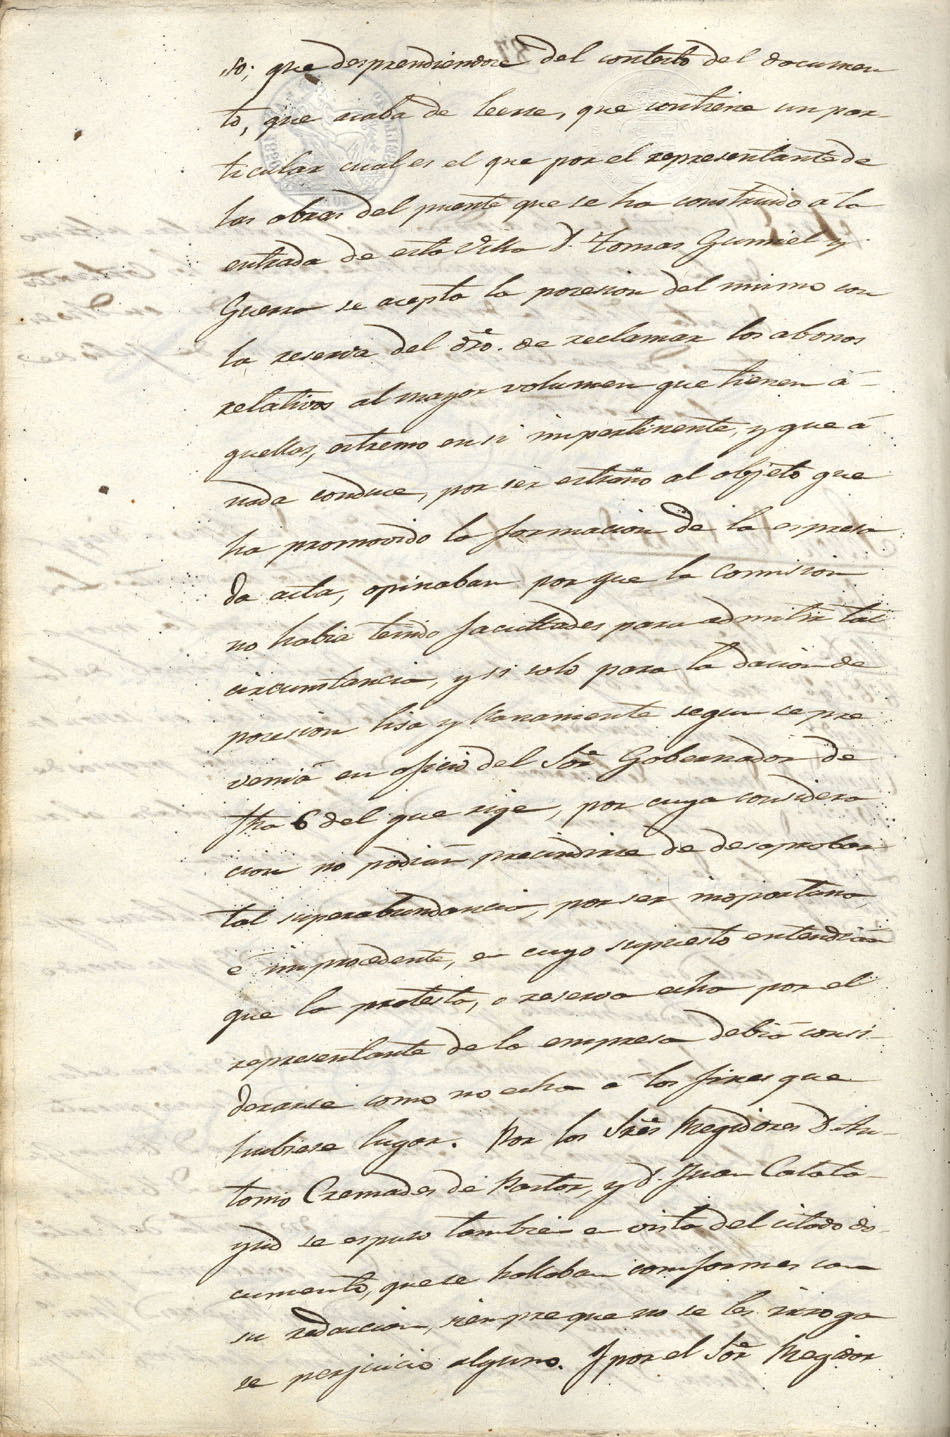 so; que desprendiendose del contesto del documen
to, que acaba de leerse, que contiene un par-
ticular cual es el que por el representante de
las obras del puente que se ha construido á la
entrada de esta Villa D. Tomas Gumiel y
Guerra se acepta la posesion del mismo con
la reserva del dro. de reclamar los abonos
relativos al mayor volumen que tienen a-
quellas, estremo en si impertinente, y que á
nada conduce, por ser estraño al objeto que
ha promovido la formacion de la espresa
da acta, opinaban por que la Comision
no habia tenido facultades para admitir tal
circunstancia, y si solo para la dacion de
posesion lisa y llanamente segun se pre
venia en oficio del Sor. Gobernador de
fha 6 del que rige, por cuya considera
cion no podian prescindirse de desaprobar
tal superabundancia, por ser inoportuna,
é improcedente, en cuyo supuesto entendian
que la protesta, o reserva echa por el
representante de la empresa debia consi-
derarse como no echa á los fines que
hubiese lugar. Por los Sres. Regidores D. An-
tonio Cremades de Pastor, y D. Juan Calata-
yud se espuso tambien en vista del citado do-
cumento, que se hallaban conformes con
su redaccion, siempre que no se les irroga
se perjuicio alguno. Y por el Sor. Regidor